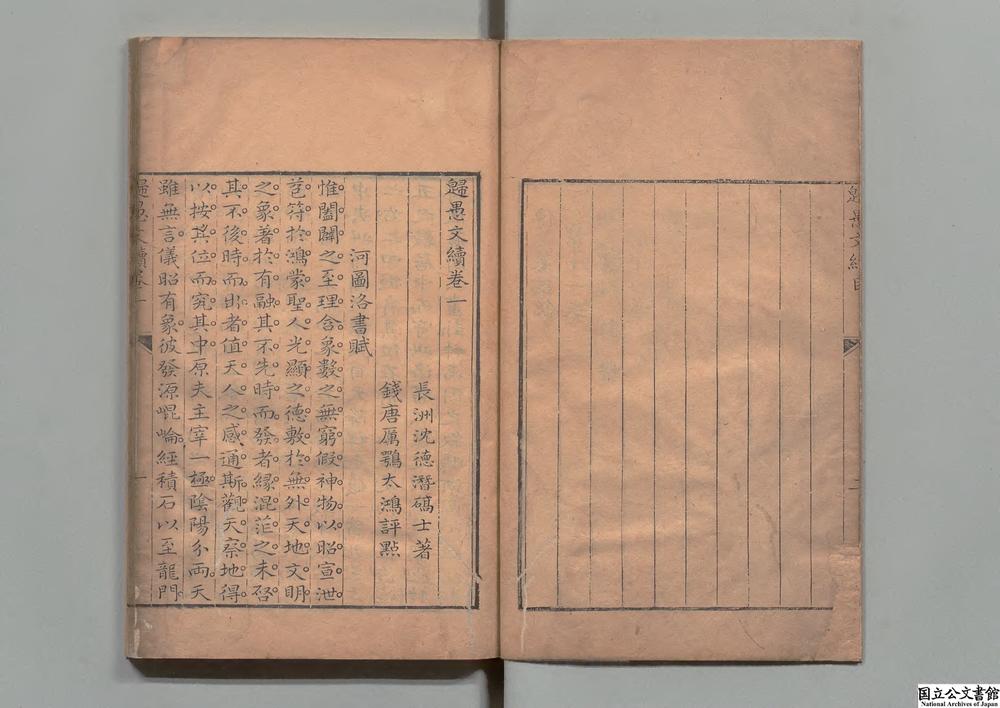 歸愚文續目
二
歸愚文續卷一
長洲沈德潛碻士著
錢唐厲鶚太鴻評點
河圖洛書賦
惟闔闢之至理含象數之無窮假神物以昭宣泄
苞符於鴻蒙聖人光顯之德敷於無外天地文明
之象著於有融其不先時而發者緣混茫之未啓
其不後時而出者值天人之感通斯觀天察地得
以按其位而究其中原夫主宰一極陰陽分兩天
雖無言儀昭有象彼發源崐崘經積石以至龍門
歸愚文續卷一
一
国立公文書館
National Archives of Japan